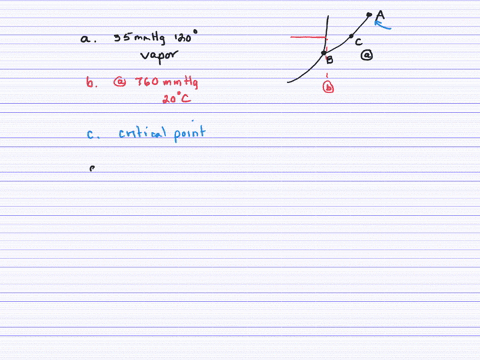 a. 35 mmHg 120°
vapor
b. @ 760 mmHg
20°C
c. critical point
A
C
B
a
b